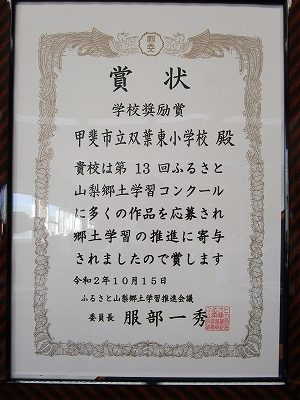 賞状
学校奨励賞
甲斐市立双葉東小学校 殿
貴校は第13回ふるさと
山梨郷土学習コンクール
に多くの作品を応募され
郷土学習の推進に寄与
されましたので賞します
令和2年10月15日
ふるさと山梨郷土学習推進会議
委員長 服部一秀